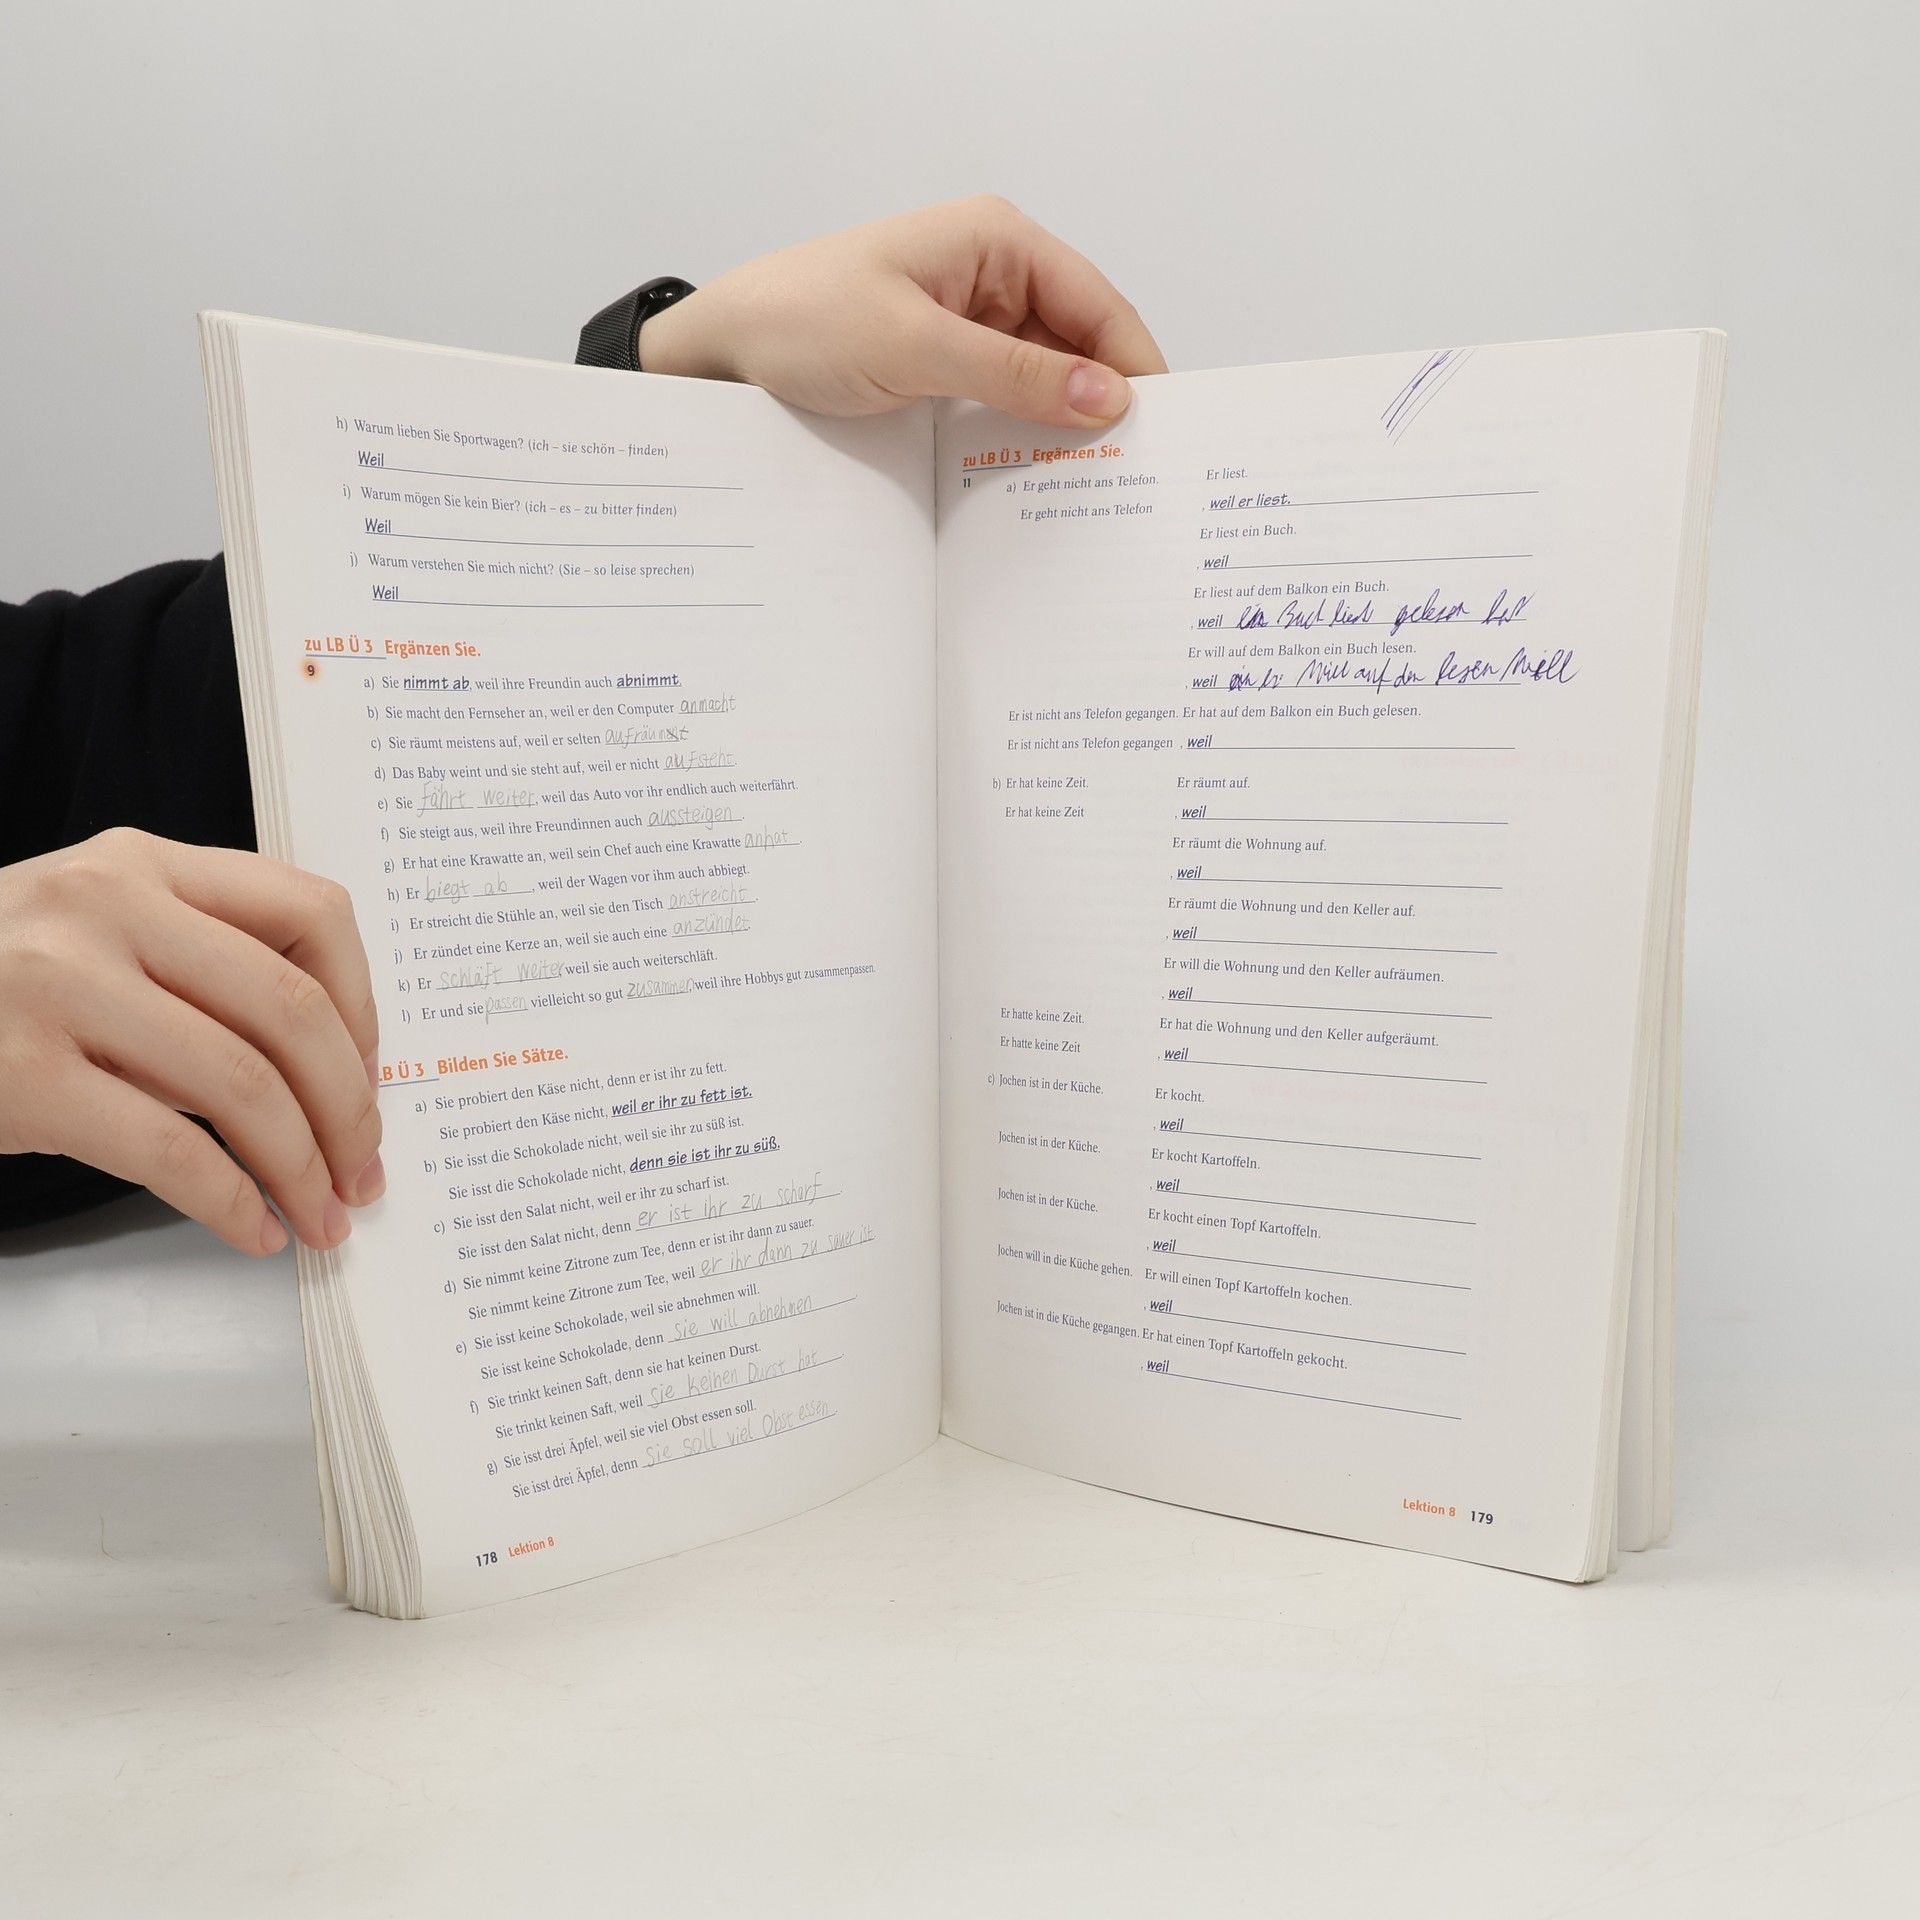 h) Warum lieben Sie Sportwagen? (ich – sie schön – finden)
Weil
i) Warum mögen Sie kein Bier? (ich – es – zu bitter finden)
Weil
j) Warum verstehen Sie mich nicht? (Sie – so leise sprechen)
Weil
zu LB Ü 3 Ergänzen Sie.
9
a) Sie nimmt ab, weil ihre Freundin auch abnimmt.
b) Sie macht den Fernseher an, weil er den Computer anmacht
c) Sie räumt meistens auf, weil er selten aufräumt
d) Das Baby weint und sie steht auf, weil er nicht aufsteht.
e) Sie fährt weiter, weil das Auto vor ihr endlich auch weiterfährt.
f) Sie steigt aus, weil ihre Freundinnen auch aussteigen.
g) Er hat eine Krawatte an, weil sein Chef auch eine Krawatte anhat.
h) Er biegt ab, weil der Wagen vor ihm auch abbiegt.
i) Er streicht die Stühle an, weil sie den Tisch anstreicht.
j) Er zündet eine Kerze an, weil sie auch eine anzündet.
k) Er schläft weiter, weil sie auch weiterschläft.
l) Er und sie passen vielleicht so gut zusammen, weil ihre Hobbys gut zusammenpassen.
LB Ü 3 Bilden Sie Sätze.
a) Sie probiert den Käse nicht, denn er ist ihr zu fett.
Sie probiert den Käse nicht, weil er ihr zu fett ist.
b) Sie isst die Schokolade nicht, weil sie ihr zu süß ist.
Sie isst die Schokolade nicht, denn sie ist ihr zu süß.
c) Sie isst den Salat nicht, weil er ihr zu scharf ist.
Sie isst den Salat nicht, denn er ist ihr zu scharf.
d) Sie nimmt keine Zitrone zum Tee, denn er ist ihr dann zu sauer.
Sie nimmt keine Zitrone zum Tee, weil er ihr dann zu sauer ist.
e) Sie isst keine Schokolade, weil sie abnehmen will.
Sie isst keine Schokolade, denn sie will abnehmen.
f) Sie trinkt keinen Saft, denn sie hat keinen Durst.
Sie trinkt keinen Saft, weil sie keinen Durst hat.
g) Sie isst drei Äpfel, weil sie viel Obst essen soll.
Sie isst drei Äpfel, denn Sie soll viel Obst essen.
178 Lektion 8
zu LB Ü 3 Ergänzen Sie.
11
a) Er geht nicht ans Telefon. Er liest.
Er geht nicht ans Telefon , weil er liest.
Er liest ein Buch.
, weil
Er liest auf dem Balkon ein Buch.
, weil Buch gelesen hat
Er will auf dem Balkon ein Buch lesen.
, weil er will auf den lesen will
Er ist nicht ans Telefon gegangen. Er hat auf dem Balkon ein Buch gelesen.
Er ist nicht ans Telefon gegangen , weil
b) Er hat keine Zeit. Er räumt auf.
Er hat keine Zeit , weil
Er räumt die Wohnung auf.
, weil
Er räumt die Wohnung und den Keller auf.
, weil
Er will die Wohnung und den Keller aufräumen.
, weil
Er hatte keine Zeit. Er hat die Wohnung und den Keller aufgeräumt.
Er hatte keine Zeit , weil
c) Jochen ist in der Küche. Er kocht.
, weil
Jochen ist in der Küche. Er kocht Kartoffeln.
, weil
Jochen ist in der Küche. Er kocht einen Topf Kartoffeln.
, weil
Jochen will in die Küche gehen. Er will einen Topf Kartoffeln kochen.
, weil
Jochen ist in die Küche gegangen. Er hat einen Topf Kartoffeln gekocht.
, weil
Lektion 8 179